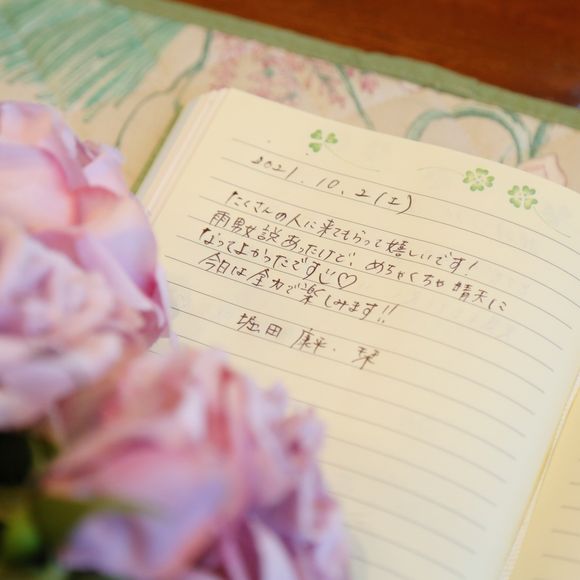 2021.10.2(土)
たくさんの人に来てもらって嬉しいです!
雨男女説あったけど、めちゃくちゃ晴天に
なってよかったですじ♡
今日は全力で楽しみます!!
堀田 康平、栞